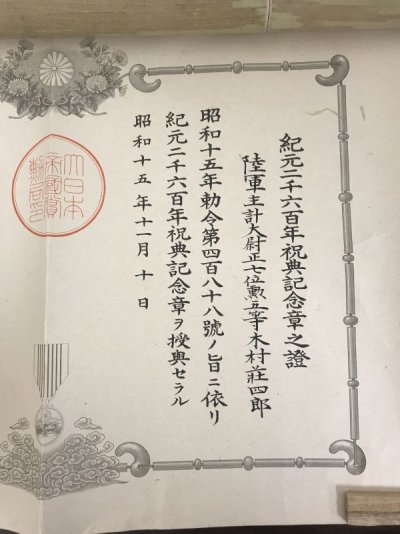 紀元二千六百年祝典記念章之證
陸軍主計大尉正七位勲五等木村莊四郎
昭和十五年勅令第四百八十八號ノ旨ニ依リ
紀元二千六百年祝典記念章ヲ授與セラル
昭和十五年十一月十日
大日本
帝國賞
勲局印